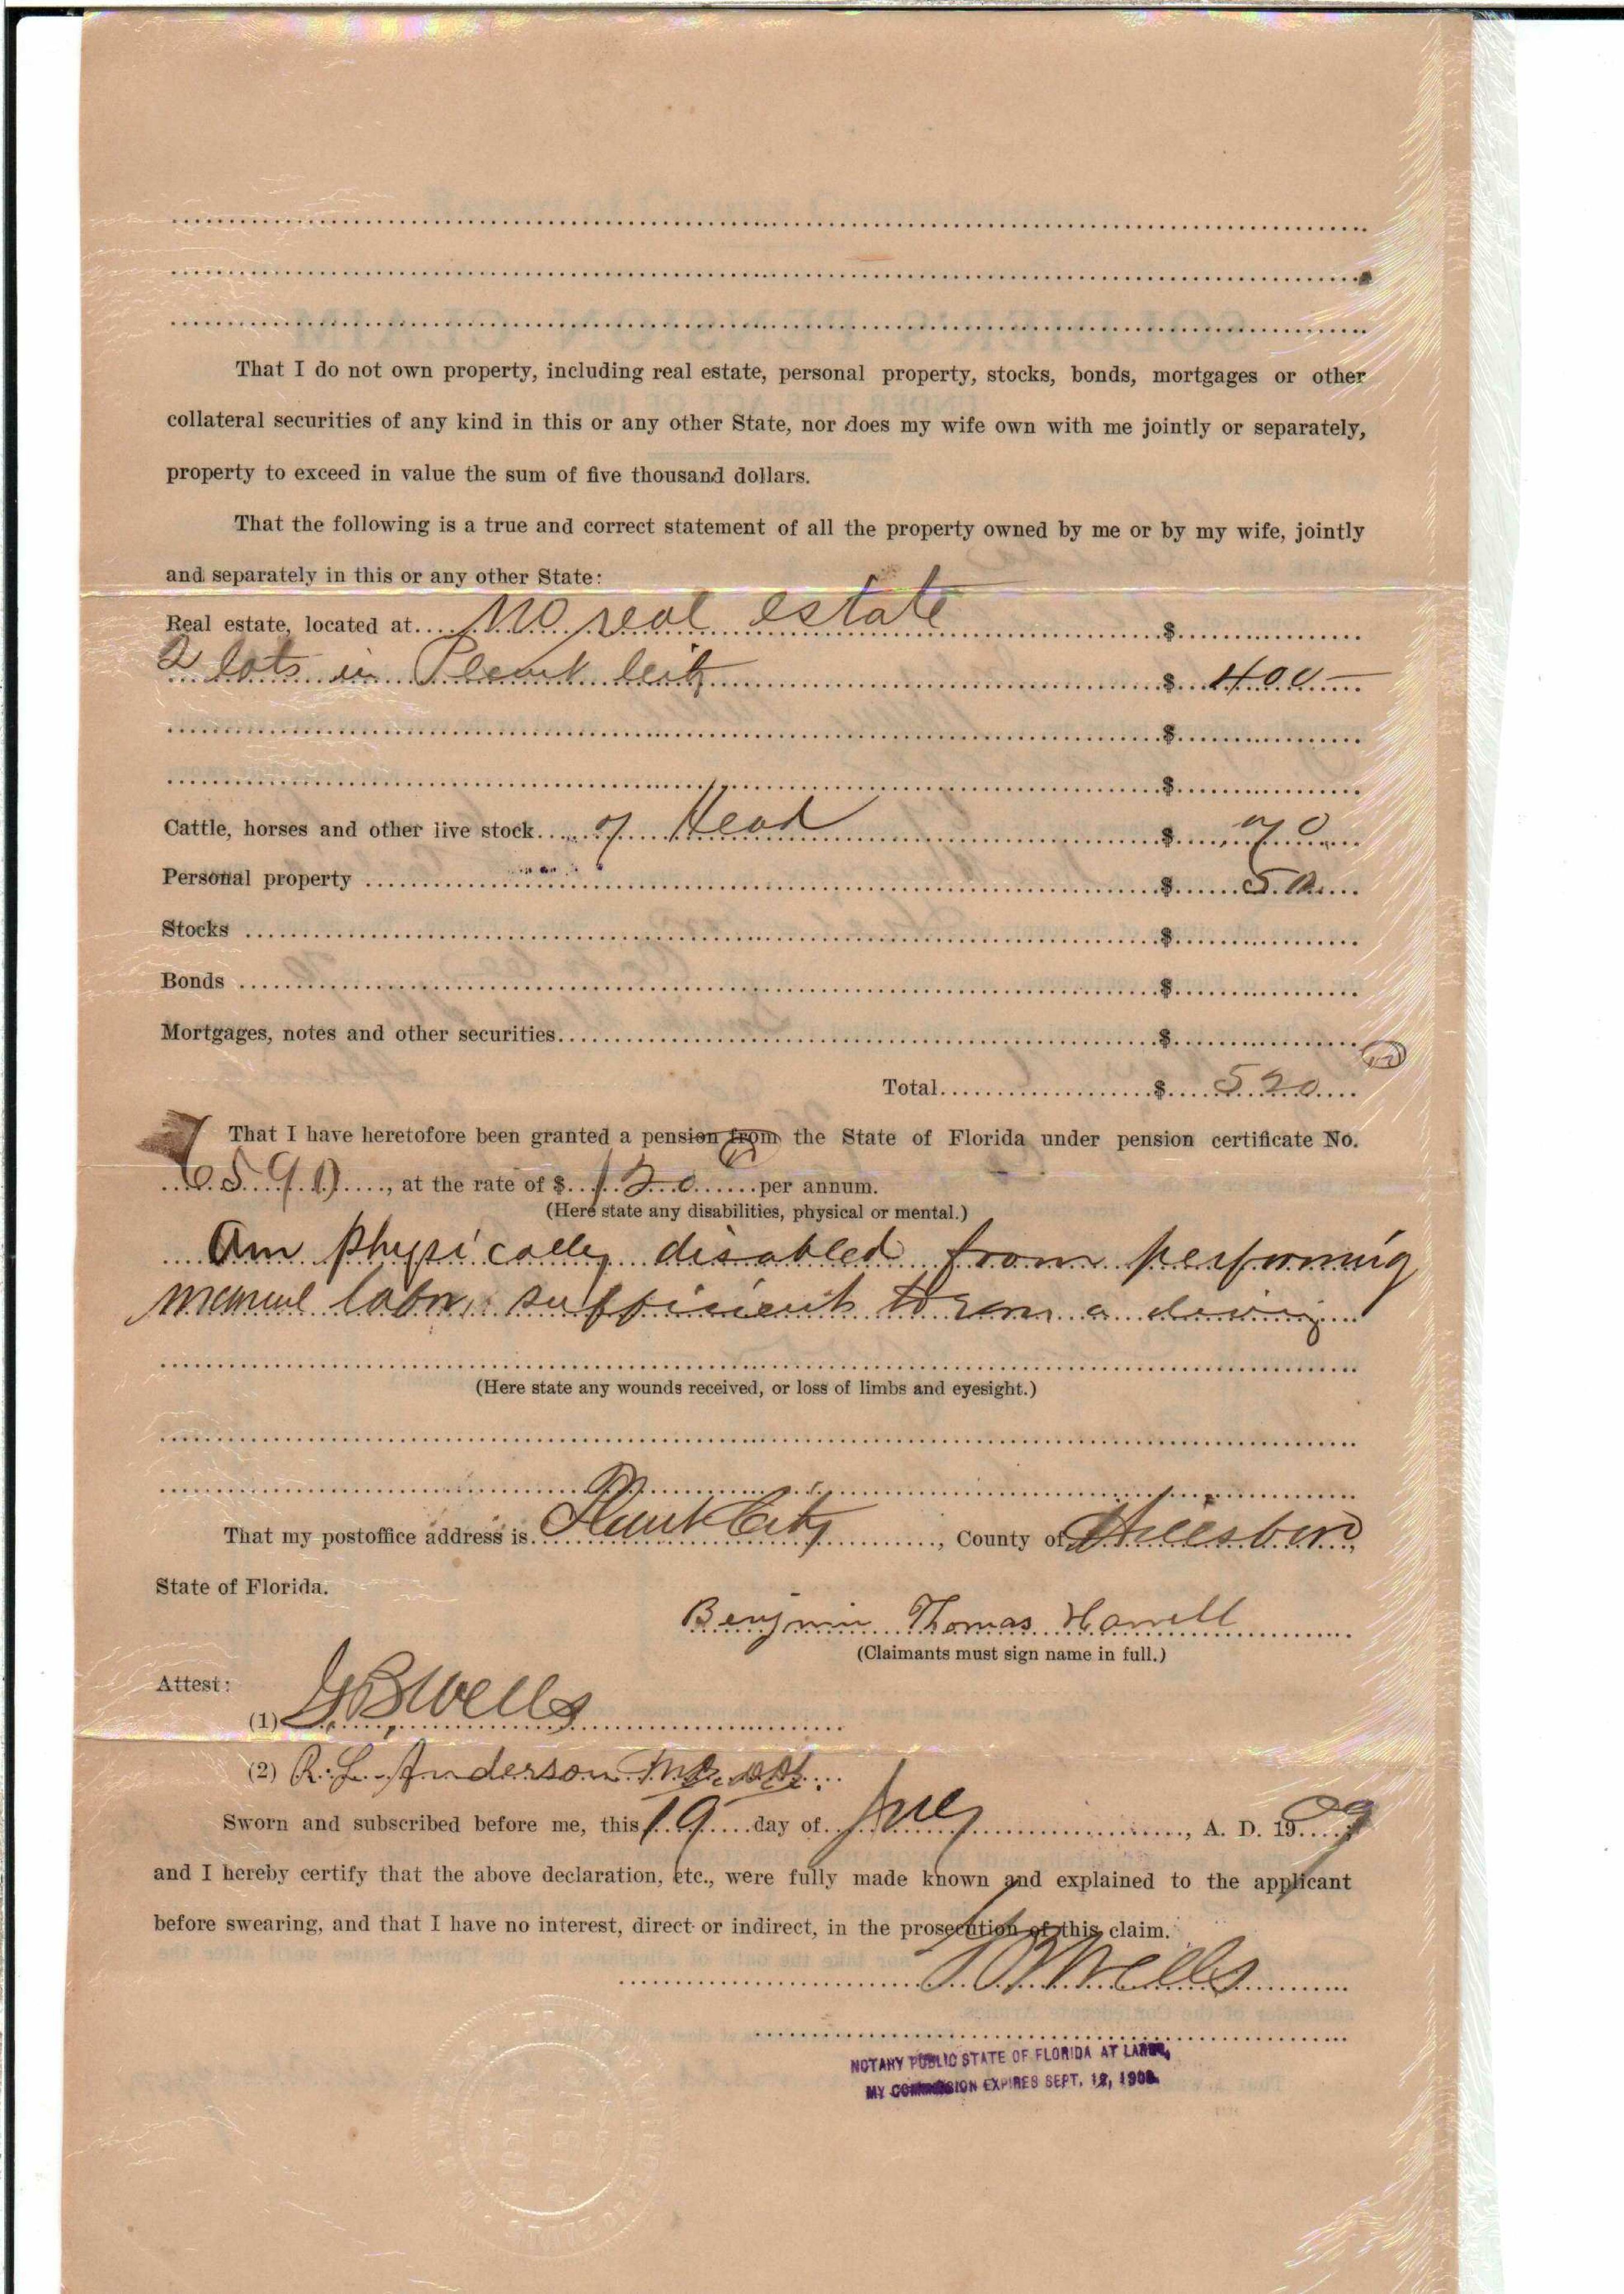 That I do not own property, including real estate, personal property, stocks, bonds, mortgages or other
collateral securities of any kind in this or any other State, nor does my wife own with me jointly or separately,
property to exceed in value the sum of five thousand dollars.
That the following is a true and correct statement of all the property owned by me or by my wife, jointly
and separately in this or any other State:
Real estate, located at no real estate $
2 lots in Plant City $ 400
$
$
Cattle, horses and other live stock 7 Head $ 70
Personal property $ 50
Stocks $
Bonds $
Mortgages, notes and other securities $
Total $ 520
That I have heretofore been granted a pension from the State of Florida under pension certificate No.
, at the rate of $ 120 per annum.
(Here state any disabilities, physical or mental.)
Am physically disabled from performing
manuel labor, sufficient to earn a living
(Here state any wounds received, or loss of limbs and eyesight.)
That my postoffice address is Plant City, County of Hillsboro,
State of Florida.
Benjmin Thomas Harrell
(Claimants must sign name in full.)
Attest:
(1) G B Wells
(2) R. L. Anderson
Sworn and subscribed before me, this 19 day of July, A. D. 1909
and I hereby certify that the above declaration, etc., were fully made known and explained to the applicant
before swearing, and that I have no interest, direct or indirect, in the prosecution of this claim.
G B Wells
NOTARY PUBLIC STATE OF FLORIDA AT LARGE,
MY COMMISSION EXPIRES SEPT. 12, 1909.